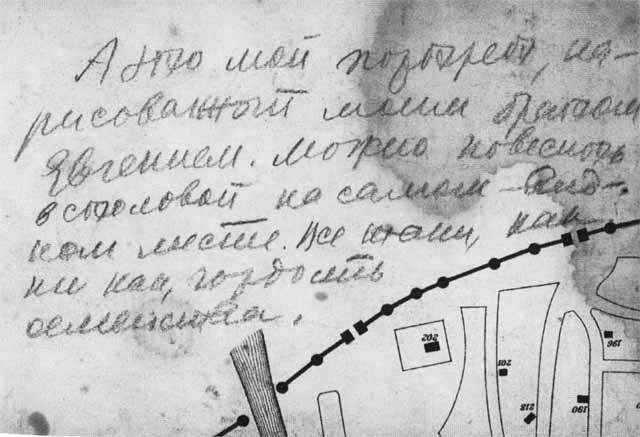 А это мой портрет, на-
рисованный моим братом
Евгением. Можно повесить
в столовой на самом вид-
ном месте. Все таки, как
ни как, гордость
семейства.
202
201
212
190
196